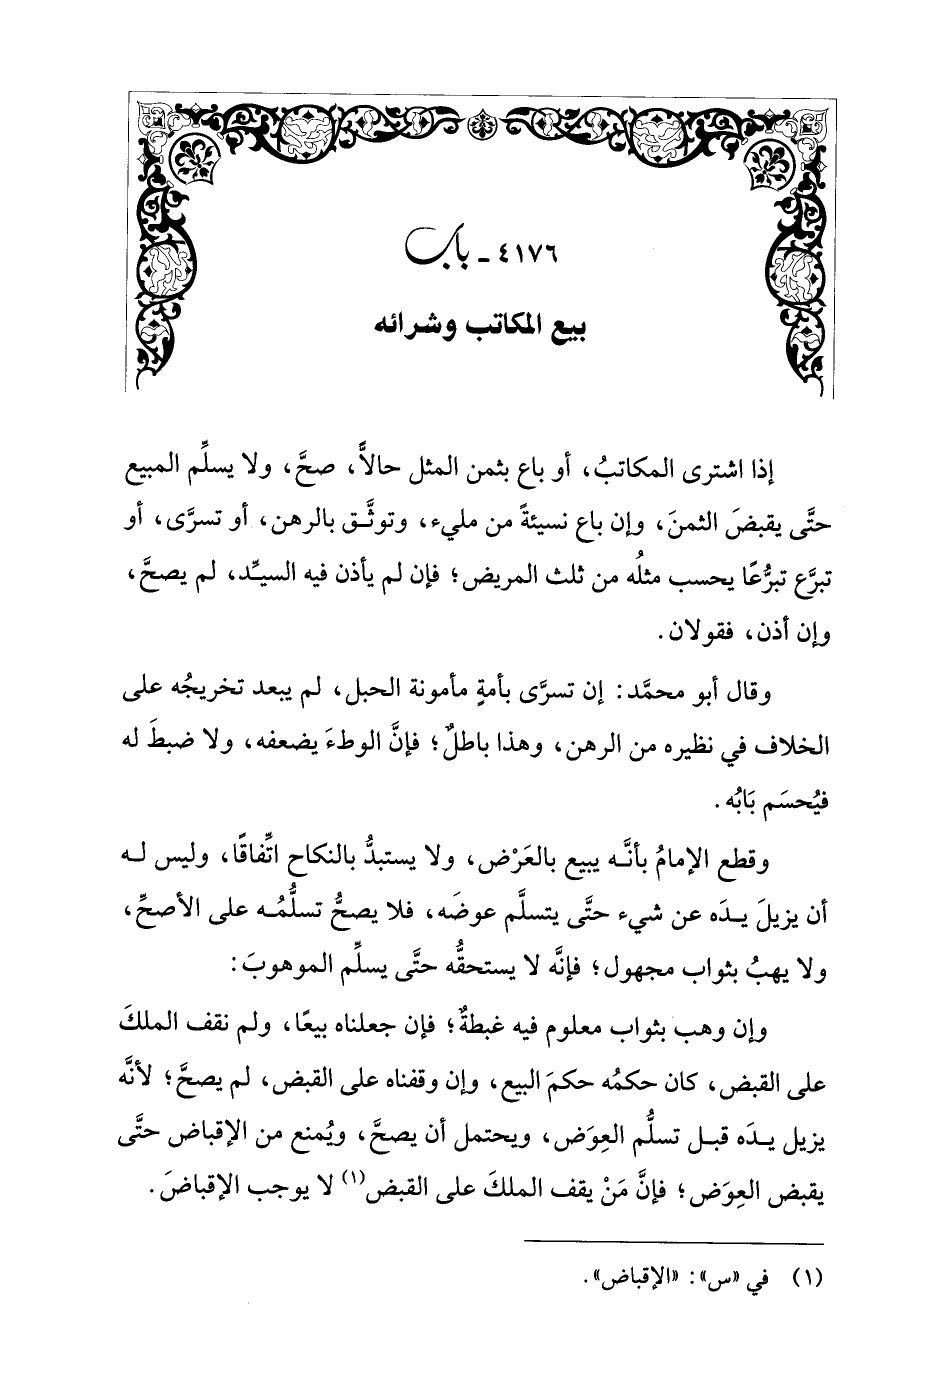 ٤١٧٦ - باب
بيع المكاتب وشرائه
إذا اشترى المكاتبُ، أو باع بثمن المثل حالاًّ، صحَّ، ولا يسلِّم المبيع
حتَّى يقبضَ الثمنَ، وإن باع نسيئةً من مليء، وتوثَّق بالرهن، أو تسرَّى، أو
تبرَّع تبرُّعًا يحسب مثلُه من ثلث المريض؛ فإن لم يأذن فيه السيِّد، لم يصحَّ،
وإن أذن، فقولان.
وقال أبو محمَّد: إن تسرَّى بأمةٍ مأمونة الحبل، لم يبعد تخريجُه على
الخلاف في نظيره من الرهن، وهذا باطلٌ؛ فإنَّ الوطءَ يضعفه، ولا ضبطَ له
فيُحسَم بَابُه.
وقطع الإمامُ بأنَّه يبيع بالعَرْض، ولا يستبدُّ بالنكاح اتِّفاقًا، وليس له
أن يزيلَ يدَه عن شيء حتَّى يتسلَّم عوضَه، فلا يصحُّ تسلُّمُه على الأصحِّ،
ولا يهبُ بثواب مجهول؛ فإنَّه لا يستحقُّه حتَّى يسلِّم الموهوبَ:
وإن وهب بثواب معلوم فيه غبطةٌ؛ فإن جعلناه بيعًا، ولم نقف الملكَ
على القبض، كان حكمُه حكمَ البيع، وإن وقفناه على القبض، لم يصحَّ؛ لأنَّه
يزيل يدَه قبل تسلُّم العِوَض، ويحتمل أن يصحَّ، ويُمنع من الإقباض حتَّى
يقبض العِوَض؛ فإنَّ مَنْ يقف الملكَ على القبض(١) لا يوجب الإقباضَ.
(١) في «س»: «الإقباض».